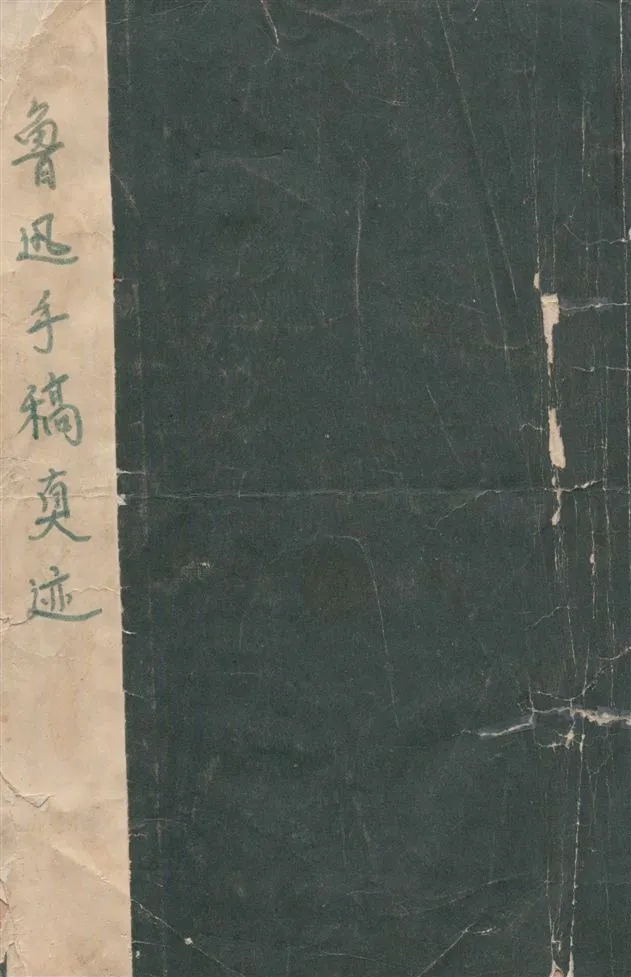 鲁迅手稿真迹